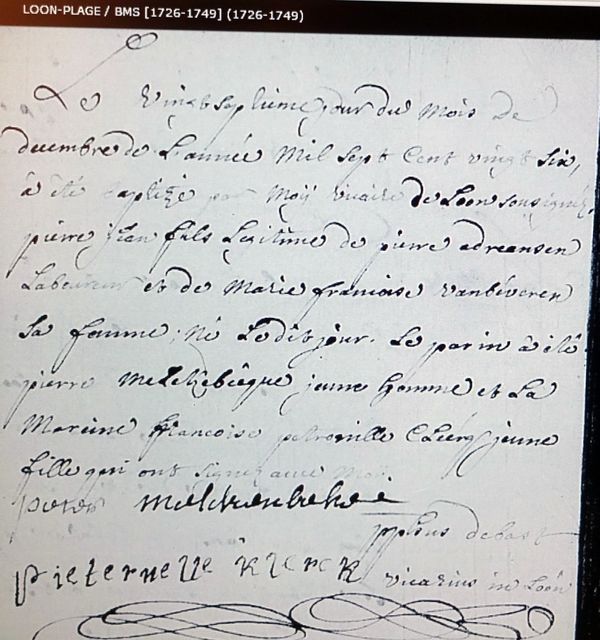 LOON-PLAGE / BMS [1726-1749] (1726-1749)
Le vingt septième jour du mois de
decembre de L'année Mil sept Cent vingt six,
à été baptizé par Moij vicaire de Loon sousigné,
pierre jean fils Legitime de pierre adreansen
Laboureur et de Marie francoise vanbéveren
Sa femme, né Ledit jour. Le parin à été
pierre jeune homme et La
Mareine francoise petronille Clercq jeune
fille qui ont signez avec Moij
peter
debast
pieternelle klerck
vicarius in Loon